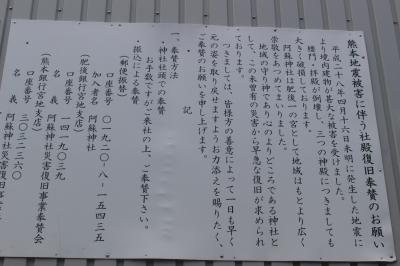 熊本地震被害に伴う社殿復旧奉賛のお願い
平成二十八年四月十六日未明に発生した地震に
より境内建物が甚大な被害を受けました。
楼門・拝殿が倒壊し、三つの神殿につきましても
大きく破損しております。
阿蘇神社は肥後一の宮として地域はもとより広く
崇敬をあつめてまいりました。
地域の守り神であり心のよりどころである神社と
して、この未曽有の災害から早急な復旧が求められ
ております。
つきましては、皆様方の善意によって一日も早く
元の姿を取り戻せますようお力添えを賜りたく、
ご奉賛のお願いを申し上げます。
記
一、奉賛方法
・神社社頭での奉賛
お手数ですがご来社の上、ご奉賛下さい。
・振込による奉賛
(郵便振替)
口座番号 〇一九二〇-八-一五四三五
加入者名 阿蘇神社
(肥後銀行宮地支店)
口座番号 一四一九〇三九
名義 阿蘇神社災害復旧事業奉賛会
(熊本銀行宮地支店)
口座番号 三〇三二三六〇
名義 阿蘇神社災害復旧事